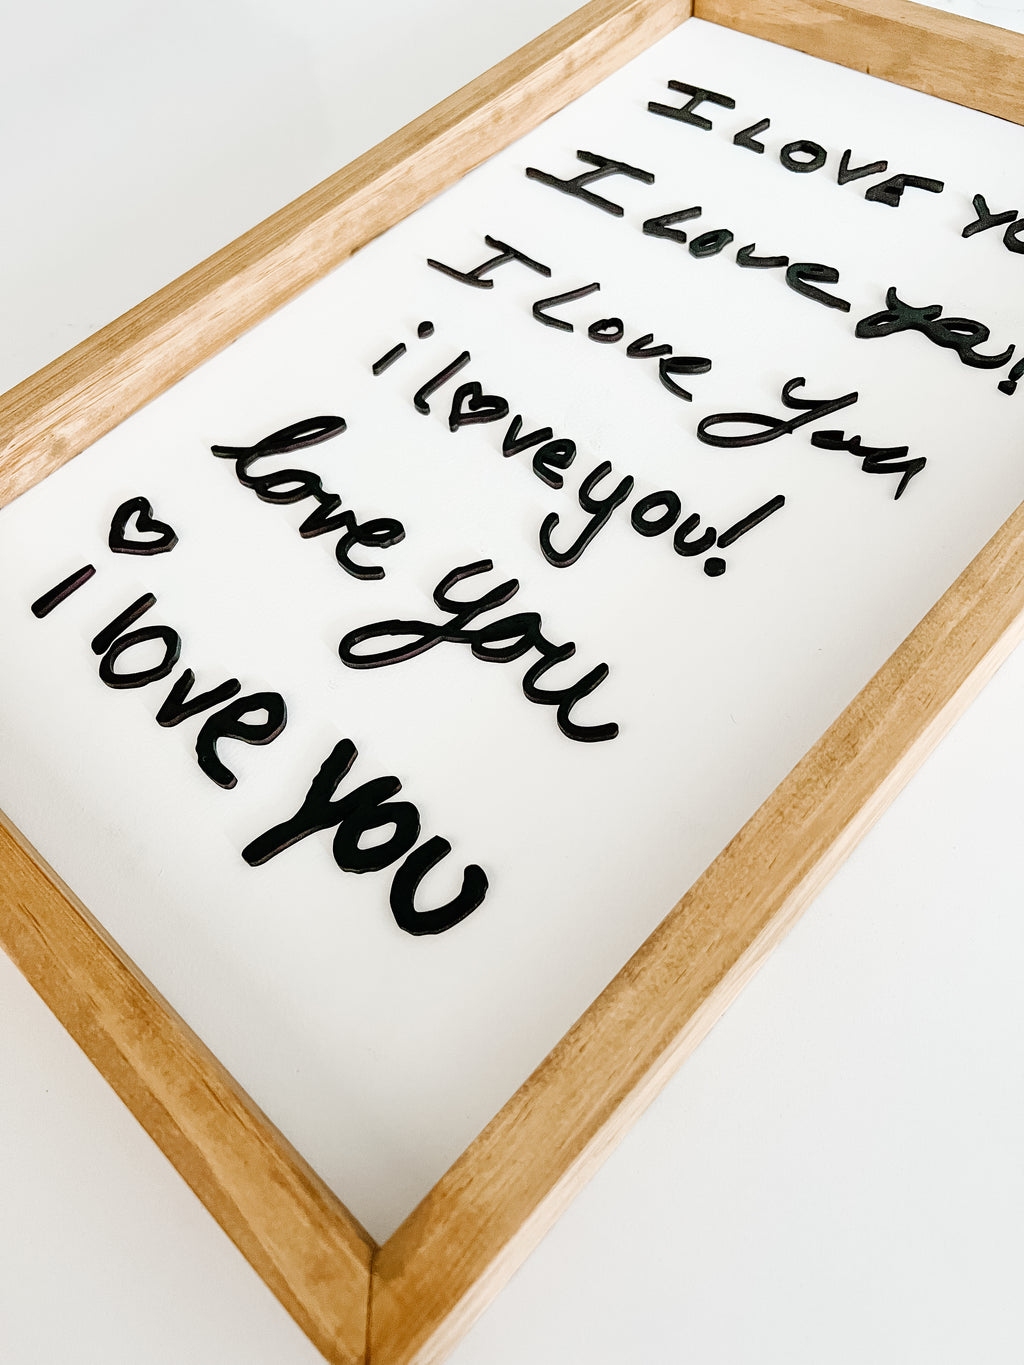 I LOVE YO
I Love ya!
I Love you
i l♥ve you!
love you
i love you